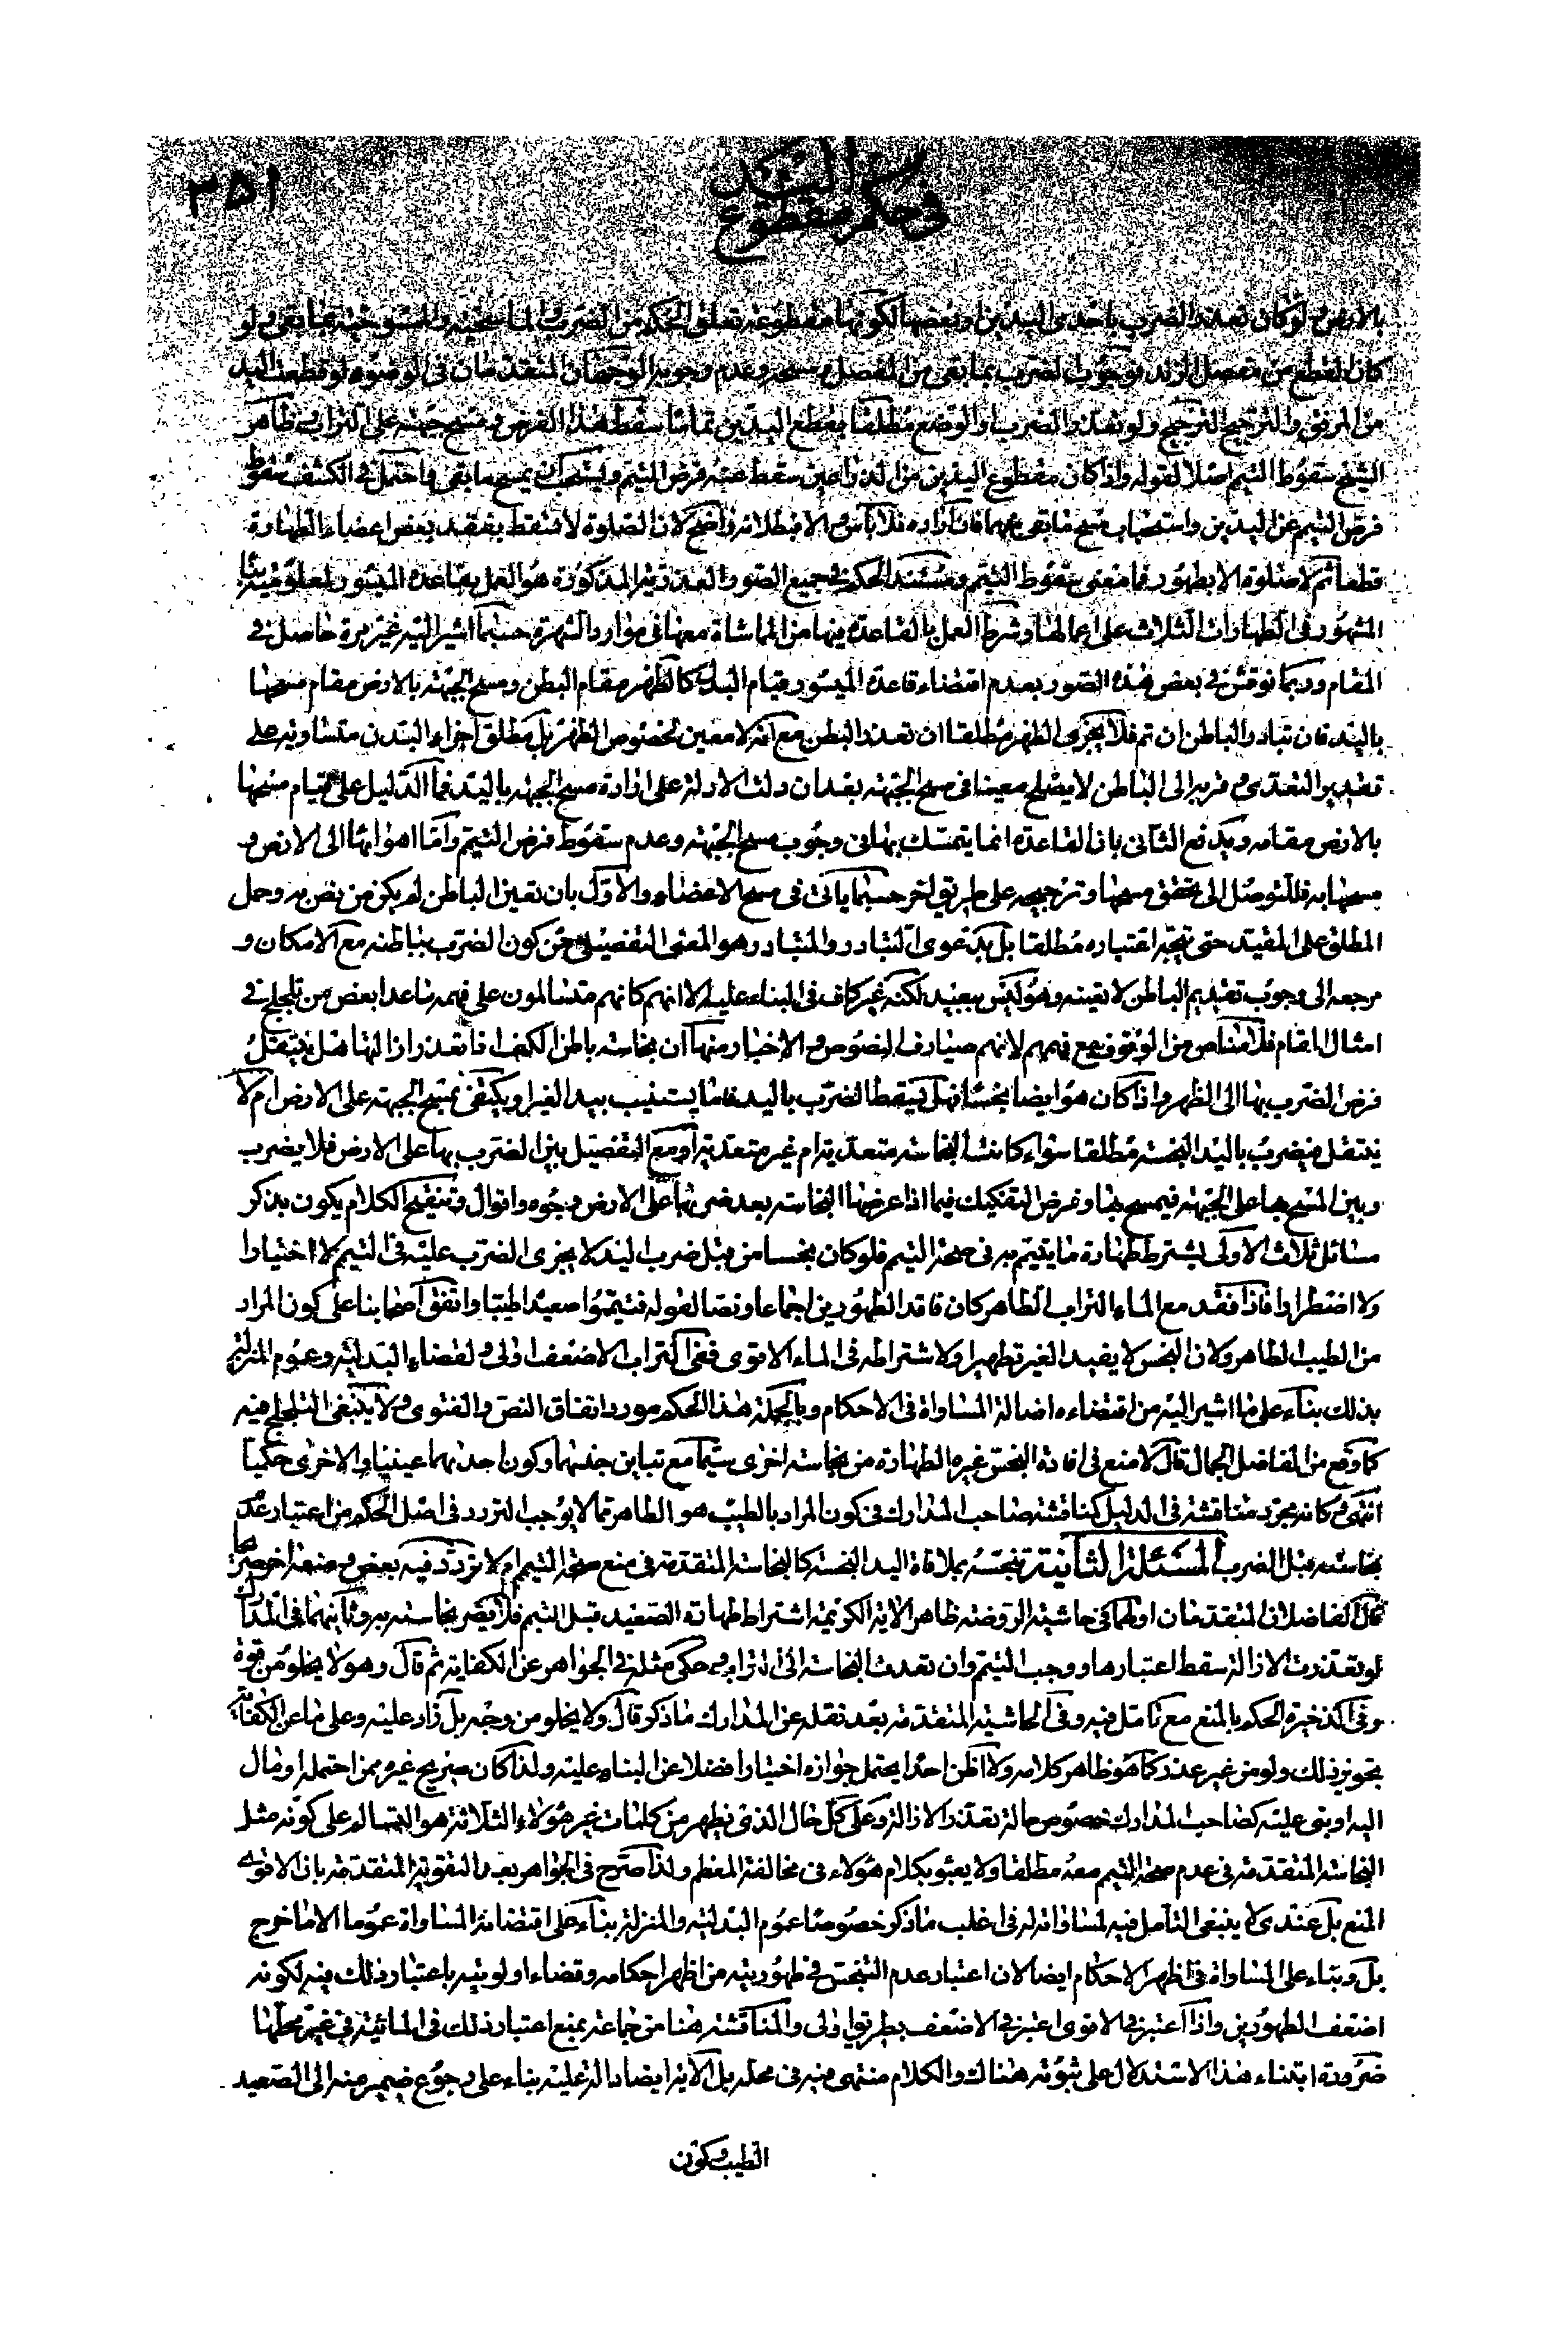 ٣٥١
في حكم مقطوع اليد
بالارض ولو كان تعذر الضرب باحدى اليدين او بعضها لكونها مقطوعة تعلق الحكم من الضرب والماسحية والممسوحية بما بقى ولو
كان القطع من مفصل الزند فوجوب الضرب بما بقى من المفصل ومسحه وعدم وجوبه الوجهان المتقدمان في الوضوء لو قطعت اليد
من المرفق والترجيح الترجيح ولو تعذر الضرب او الوضع مطلقا بقطع اليدين تماما سقط هذا الفرض ومسح جبهته على التراب وظاهر
الشيخ سقوط التيمم اصلا لقوله واذا كان مقطوع اليدين من الذراعين سقط عنه فرض التيمم ويستحب ان يمسح ما بقى واحتمل في الكشف سقوط
فرض التيمم عن اليدين واستحباب مسح ما بقى منهما فان اراده فلا باس والا فبطلانه واضح لان الصلوة لا تسقط بفقد بعض اعضاء الطهارة
قطعا ثم لا صلوة الا بطهور فما معنى سقوط التيمم ومستند الحكم في جميع الصور العذرية المذكورة هو العمل بقاعدة الميسور لمعلومية بناء
المشهور في الطهارات الثلاث على اعمالها وشرط العمل بالقاعدة فيها من المماشاة معها في موارد الشهرة حسبما اشير اليه غير مرة حاصل في
المقام وربما نوقش في بعض هذه الصور بعدم اقتضاء قاعدة الميسور قيام البدل كالظهر مقام البطن ومسح الجبهة بالارض مقام مسحها
باليد فان تبادر الباطن ان تم فلا يجزى الظهر مطلقا ان تعذر البطن مع انه لا معين لخصوص الظهر بل مطلق اجزاء البدن متساوية على
تقدير التعدى وقربه الى الباطن لا يصلح معينا في مسح الجبهة بعد ان دلت الادلة على ارادة مسح الجبهة باليد فما الدليل على قيام مسحها
بالارض مقامه ويدفع الثانى بان القاعدة انما يتمسك بها في وجوب مسح الجبهة وعدم سقوط فرض التيمم واما اهوائها الى الارض و
مسحها به فللتوصل الى تحقق مسحها وترجيحه على طريق اخر حسبما ياتى في مسح الاعضاء والاول بان تعين الباطن لم يكن من نص به وحمل
المطلق على المقيد حتى يتجه اعتباره مطلقا بل بدعوى التبادر والمتبادر هو المعنى التفصيلى من كون الضرب بباطنه مع الامكان و
مرجعه الى وجوب تقديم الباطن لا تعينه وهو ليس ببعيد لكنه غير كاف في البناء عليه الا انهم كانهم متسالمون على فهمه ما عدا بعض من تلجلج في
امثال المقام فلا مناص من الوقوف مع فهمهم لانهم صيارف النصوص والاخبار منها ان نجاسة باطن الكف اذا تعذر ازالتها هل ينتقل
فرض الضرب بها الى الظهر واذا كان هو ايضا نجسا فهل يسقط الضرب باليد فاما يستنيب بيد الغير او يكتفى بمسح الجبهة على الارض ام لا
ينتقل فيضرب باليد النجسة مطلقا سواء كانت النجاسة متعدية ام غير متعدية او مع التفصيل بين الضرب بها على الارض فلا يضرب
وبين المسح بها على الجبهة فيمسح بها وفرض التفكيك فيما اذا عرضها النجاسة بعد ضربها على الارض وجوه واقوال وتنقيح الكلام يكون بذكر
مسائل ثلاث الاولى يشترط طهارة ما يتيمم به في صحة التيمم فلو كان نجسا من قبل ضرب اليد لا يجزى الضرب عليه في التيمم لا اختيارا
ولا اضطرارا فاذا فقد مع الماء التراب الطاهر كان فاقد الطهورين اجماعا ونصا لقوله فتيمموا صعيدا طيبا واتفق اصحابنا على كون المراد
من الطيب الطاهر ولان النجس لا يفيد الغير تطهيرا ولاشتراطه في الماء الاقوى ففى التراب الاضعف اولى ولقضاء البدلية وعموم المنزلة
بذلك بناء على ما اشير اليه من اقتضاءه اصالة المساواة في الاحكام وبالجملة هذا الحكم مورد اتفاق النص والفتوى ولا ينبغى التلجلج فيه
كما وقع من الفاضل الجمال قال لا منع في افادة النجس غيره الطهارة من نجاسة اخرى سيما مع تباين جنسهما وكون احدهما عينيا والاخرى حكيما
انتهى وكانه مجرد مناقشة في الدليل كمناقشة صاحب المدارك في كون المراد بالطيب هو الطاهر مما لا يوجب التردد في اصل الحكم من اعتبار عدم
نجاسته قبل الضرب المسئلة الثانية تنجسه بملاقاة اليد النجسة كالنجاسة المتقدمة في منع صحة التيمم ام لا تردد فيه بعض ومنعه اخر صريحا
قال الفاضلان المتقدمان اولهما في حاشية الروضة ظاهر الاية الكريمة اشتراط طهارة الصعيد قبل التيمم فلا يضر نجاسته به وثانيهما في المدارك
لو تعذرت الازالة سقط اعتبارها ووجب التيمم وان تعدت النجاسة الى التراب وحكى مثله في الجواهر عن الكفاية ثم قال وهو لا يخلو من قوة
وفي الذخيرة الحكم بالمنع مع تامل فيه وفي الحاشية المتقدمة بعد نقله عن المدارك ما ذكر قال ولا يخلو من وجه بل زاد عليه وعلى ما عن الكفاية
تجويز ذلك ولو من غير عذر كما هو ظاهر كلامه ولا اظن احدا يحتمل جوازه اختيارا فضلا عن البناء عليه ولذا كان صريح غيره ممن احتمله او مال
اليه او بنى عليه كصاحب المدارك خصوص حالة تعذر الازالة وعلى كل حال الذى يظهر من كلمات غير هؤلاء الثلاثة هو التسالم على كونه مثل
النجاسة المتقدمة في عدم صحة التيمم معه مطلقا ولا يعبؤ بكلام هؤلاء في مخالفة المعظم ولذا صرح في الجواهر بعد التقوية المتقدمة بان الاقوى
المنع بل عندى لا ينبغى التامل فيه لمساواته له في اغلب ما ذكر خصوصا عموم البدلية والمنزلة بناء على اقتضائه المساواة عموما الا ما خرج
بل وبناء على المساواة في اظهر الاحكام ايضا لان اعتبار عدم التنجس في طهوريته من اظهر احكامه وقضاء اولويته باعتبار ذلك فيه لكونه
اضعف الطهورين واذا اعتبر في الاقوى اعتبر في الاضعف بطريق اولى والمناقشة هنا من جماعة بمنع اعتبار ذلك في المائية في غير محلها
ضرورة ابتناء هذا الاستدلال على ثبوته هناك والكلام منتهى فيه في محله بل الاية ايضا دالة عليه بناء على رجوع ضمير منه الى الصعيد
الطيب وكون